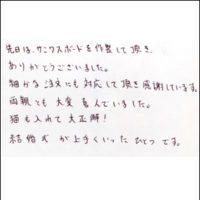 先日は、サンクスボードを作製して頂き、
ありがとうございました。
細かな注文にも対応して頂き感謝しています。
両親とも大変喜んでいました。
猫も入れて大正解!
結婚式が上手くいったひとつです。